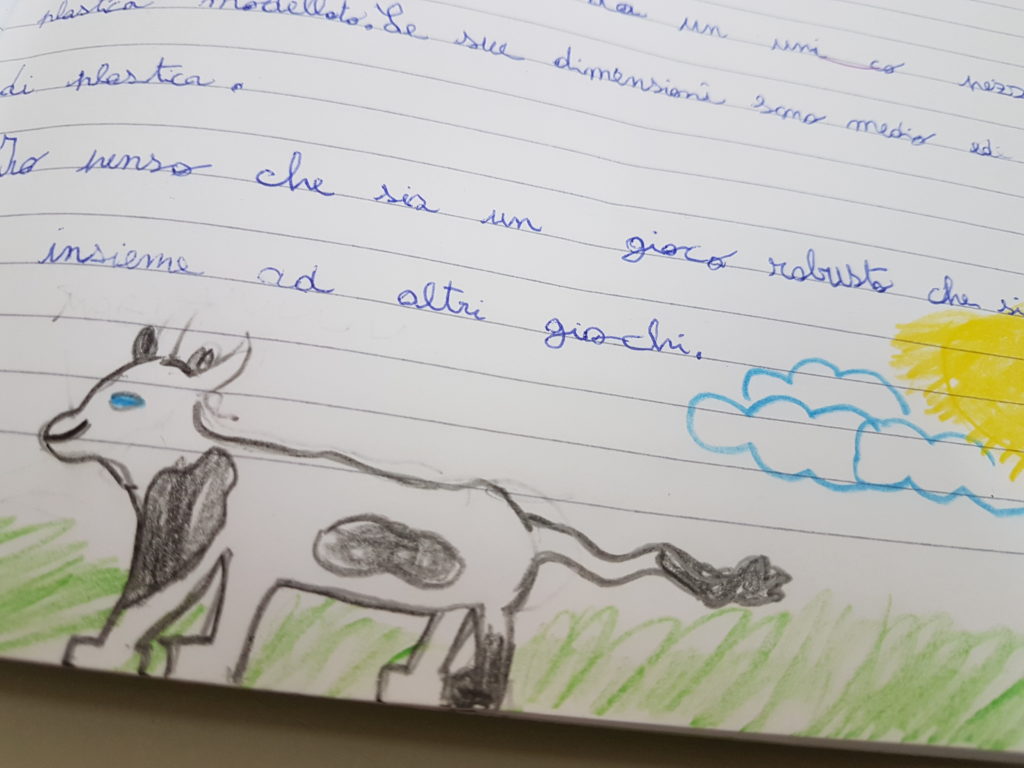 plastica modellato. Le sue dimensioni sono medio ed
un uni co pezzo
di plastica.
Io penso che sia un gioco robusto che si
insieme ad altri giochi.